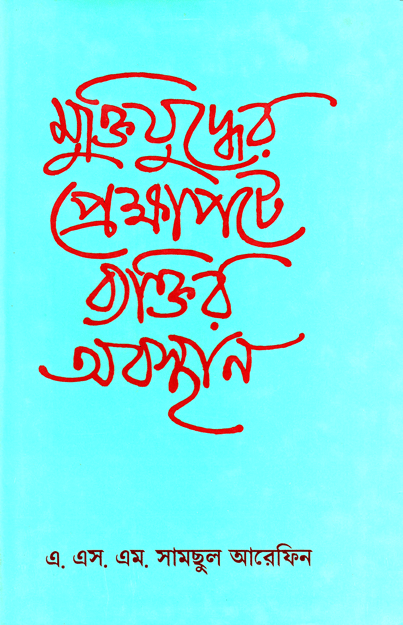 মুক্তিযুদ্ধের
প্রেক্ষাপটে
ব্যক্তির
অবস্থান
এ. এস. এম. সামছুল আরেফিন